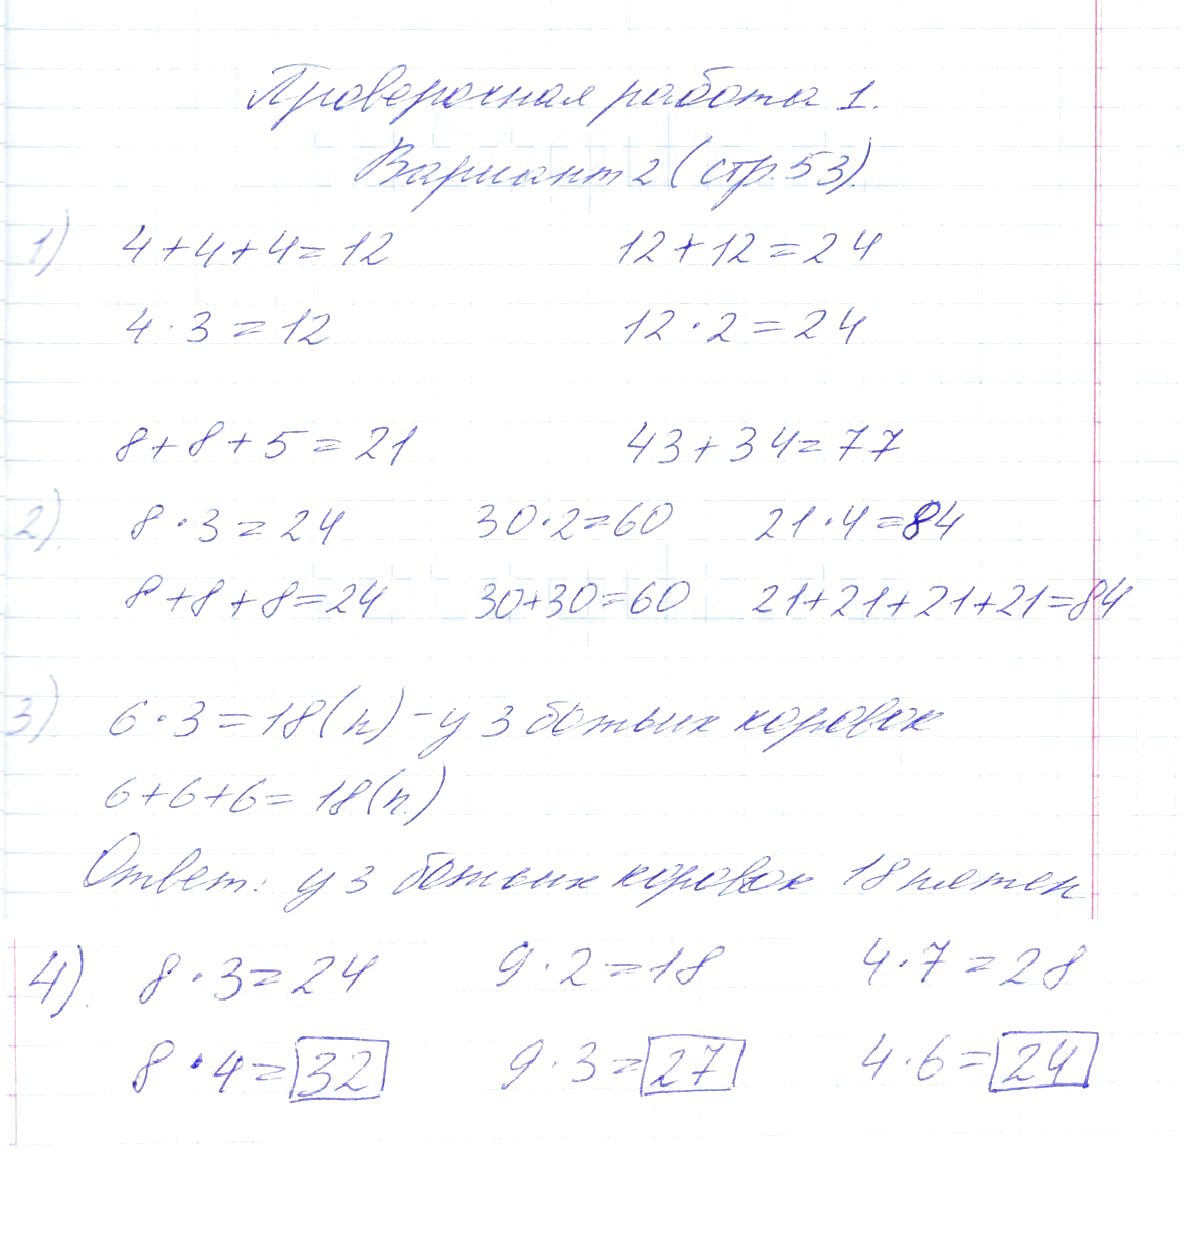 Проверочная работа 1.
Вариант 2 (стр. 53).
1) 4+4+4=12 12+12=24
4·3=12 12·2=24
8+8+5=21 43+34=77
2). 8·3=24 30·2=60 21·4=84
8+8+8=24 30+30=60 21+21+21+21=84
3) 6·3=18(п) - у 3 божьих коровок
6+6+6=18(п.)
Ответ: у 3 божьих коровок 18 пятен
4). 8·3=24 9·2=18 4·7=28
8·4=32 9·3=27 4·6=24